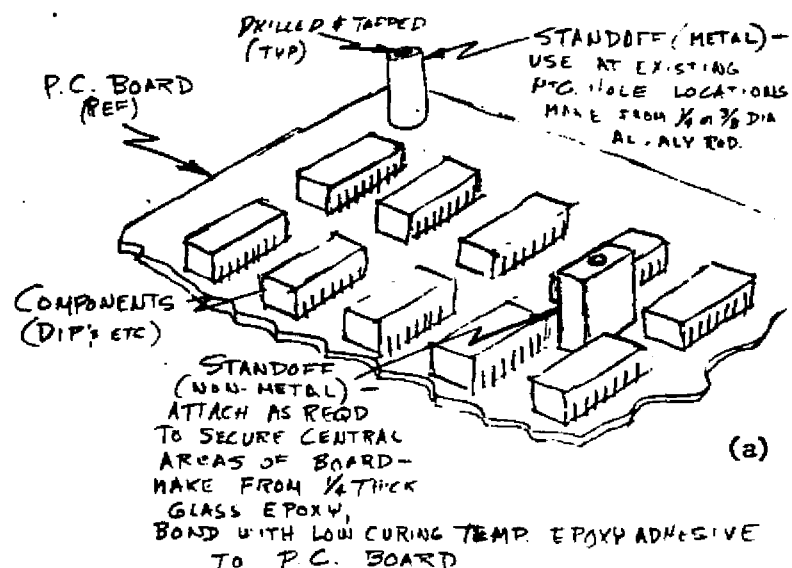 DRILLED & TAPPED
(TYP)
STANDOFF (METAL) —
USE AT EXISTING
MTG. HOLE LOCATIONS
MAKE FROM 1/4 or 3/8 DIA
AL. ALY ROD.
P.C. BOARD
(REF)
COMPONENTS
(DIP's ETC)
STANDOFF
(NON-METAL) —
ATTACH AS REQD
TO SECURE CENTRAL
AREAS OF BOARD —
MAKE FROM 1/4 THICK
GLASS EPOXY,
BOND WITH LOW CURING TEMP. EPOXY ADHESIVE
TO P.C. BOARD
(a)